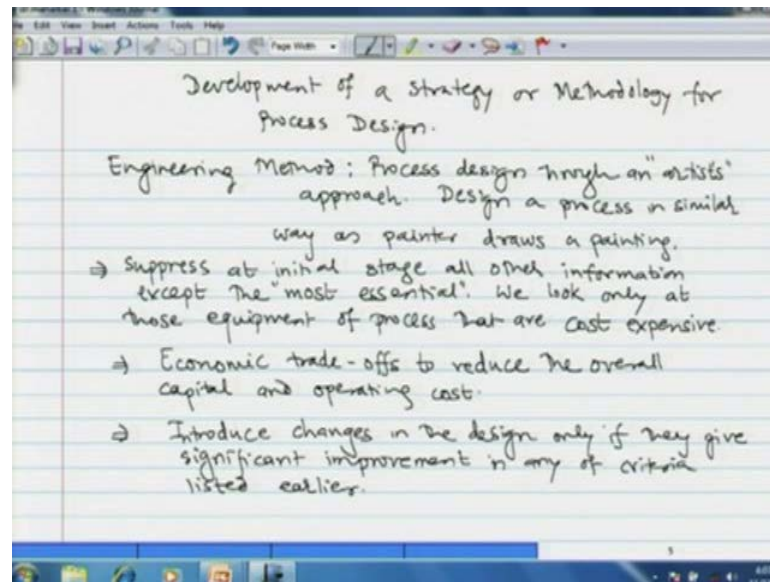 File Edit View Insert Actions Tools Help
Page Width
Development of a strategy or Methodology for
Process Design.
Engineering Method : Process design through an "artists"
approach. Design a process in similar
way as painter draws a painting.
⇒ Suppress at initial stage all other information
except the "most essential". We look only at
those equipment of process that are cost expensive.
⇒ Economic trade-offs to reduce the overall
capital and operating cost.
⇒ Introduce changes in the design only if they give
significant improvement in any of criteria
listed earlier.
5